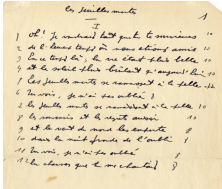 les feuilles mortes 1
I
1 Oh ! je voudrais tant que tu te souviennes 10
2 de l'heureux temps où nous étions amis 10
3 En ce temps là, la vie était plus belle 10
4 et le soleil plus brûlant qu'aujourd'hui 10
5 Les feuilles mortes se ramassent à la pelle
6 Tu vois, je n'ai pas oublié 8
7 les feuilles mortes se ramassent à la pelle
8 les souvenirs et les regrets aussi
9 et le vent du nord les emporte 8
10 dans la nuit froide de l'oubli 8
11 Tu vois, je n'ai pas oublié 8
12 la chanson que tu me chantais 8